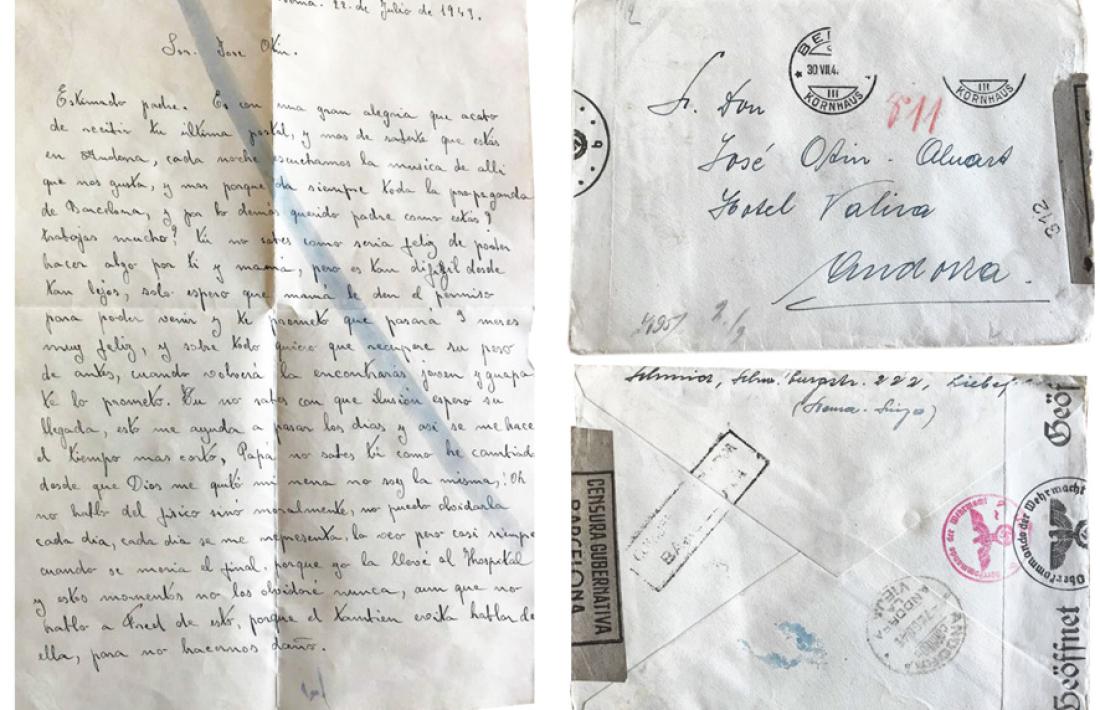 22 de Julio de 1943.
Snr. Jose Otin.
Estimado padre. Es con una gran alegria que acabo
de recibir tu última postal, y mas de saberte que estás
en Andorra, cada noche escuchamos la musica de alli
que nos gusta, y mas porque da siempre toda la propaganda
de Barcelona, y por lo demás querido padre como estás?
trabajas mucho? tú no sabes como seria feliz de poder
hacer algo por ti y mamá, pero es tan dificil desde
tan lejos, solo espero que mamá le den el permiso
para poder venir y te prometo que pasará 3 meses
muy feliz, y sobre todo quiero que recupere su peso
de antes, cuando volverá la encontrarás joven y guapa
te lo prometo. Tu no sabes con que ilusión espero su
llegada, esto me ayuda a pasar los dias y asi se me hace
el tiempo mas corto, Papá no sabes tú como he cambiado
desde que Dios me quitó mi nena no soy la misma, ¡Oh
no hablo del fisico sinó moralmente, no puedo olvidarla
cada dia, cada dia se me representa, la veo pero casi siempre
cuando se moria el final, porque yo la llevé al Hospital
y estos momentos no los olvidaré nunca, aun que no
hablo a Fred de esto, porque el tambien evita hablar de
ella, para no hacernos daño.
30 VII 4.
III
KORNHAUS
III
KORNHAUS
811
Sr. Don
José Otin - Aluart
Hotel Valira
Andorra.
312
Schmid, 222, Liebef
(Berna - Suiza)
CENSURA GUBERNATIVA
BARCELONA
Oberkommando der Wehrmacht
Oberkommando der Wehrmacht
Geöf
Geöffnet
ANDORRA
LA
VIEJA